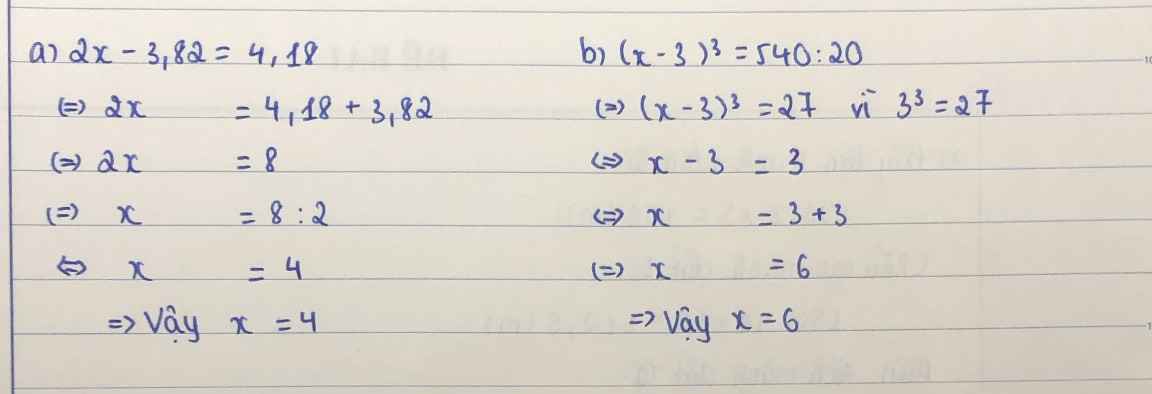 a) 2x - 3,82 = 4,18
(=) 2x = 4,18 + 3,82
(=) 2x = 8
(=) x = 8 : 2
<=> x = 4
=> Vậy x = 4
b) (x - 3)³ = 540 : 20
(=) (x - 3)³ = 27 vì 3³ = 27
<=> x - 3 = 3
<=> x = 3 + 3
(=) x = 6
=> Vậy x = 6